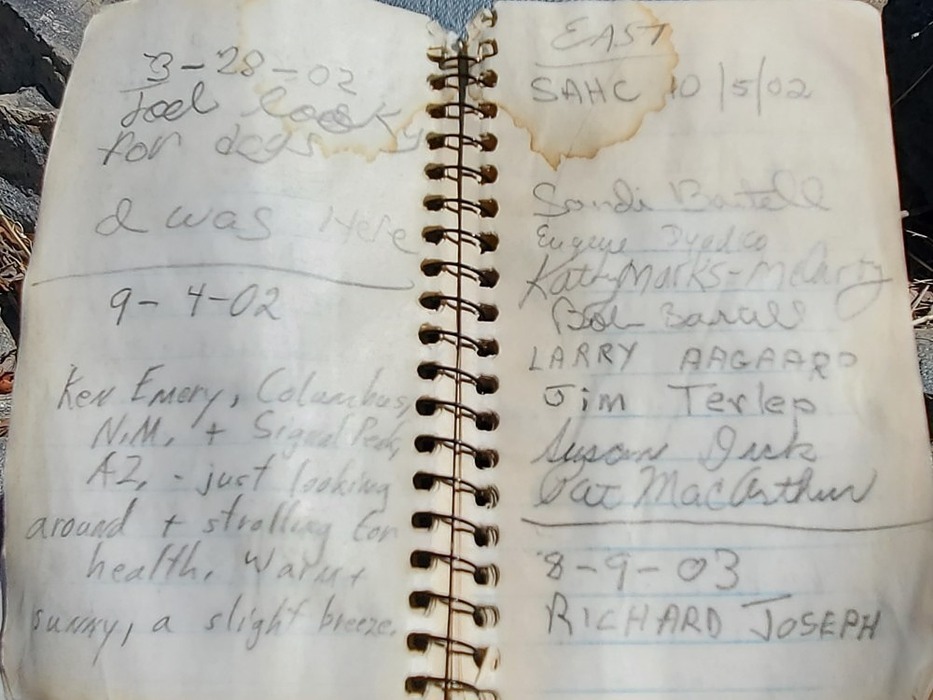 3-28-02
for dogs
I was Here
9-4-02
Ken Emery, Columbus,
N.M. + Signal Peak,
AZ, - just looking
around + strolling for
health. Warm +
sunny, a slight breeze.
EAST
SAHC 10/5/02
Sandi Bartell
Eugene
Kathy Marks-McCarty
Bob Bartell
LARRY AAGAARD
Jim Terlep
Susan
Pat MacArthur
8-9-03
RICHARD JOSEPH